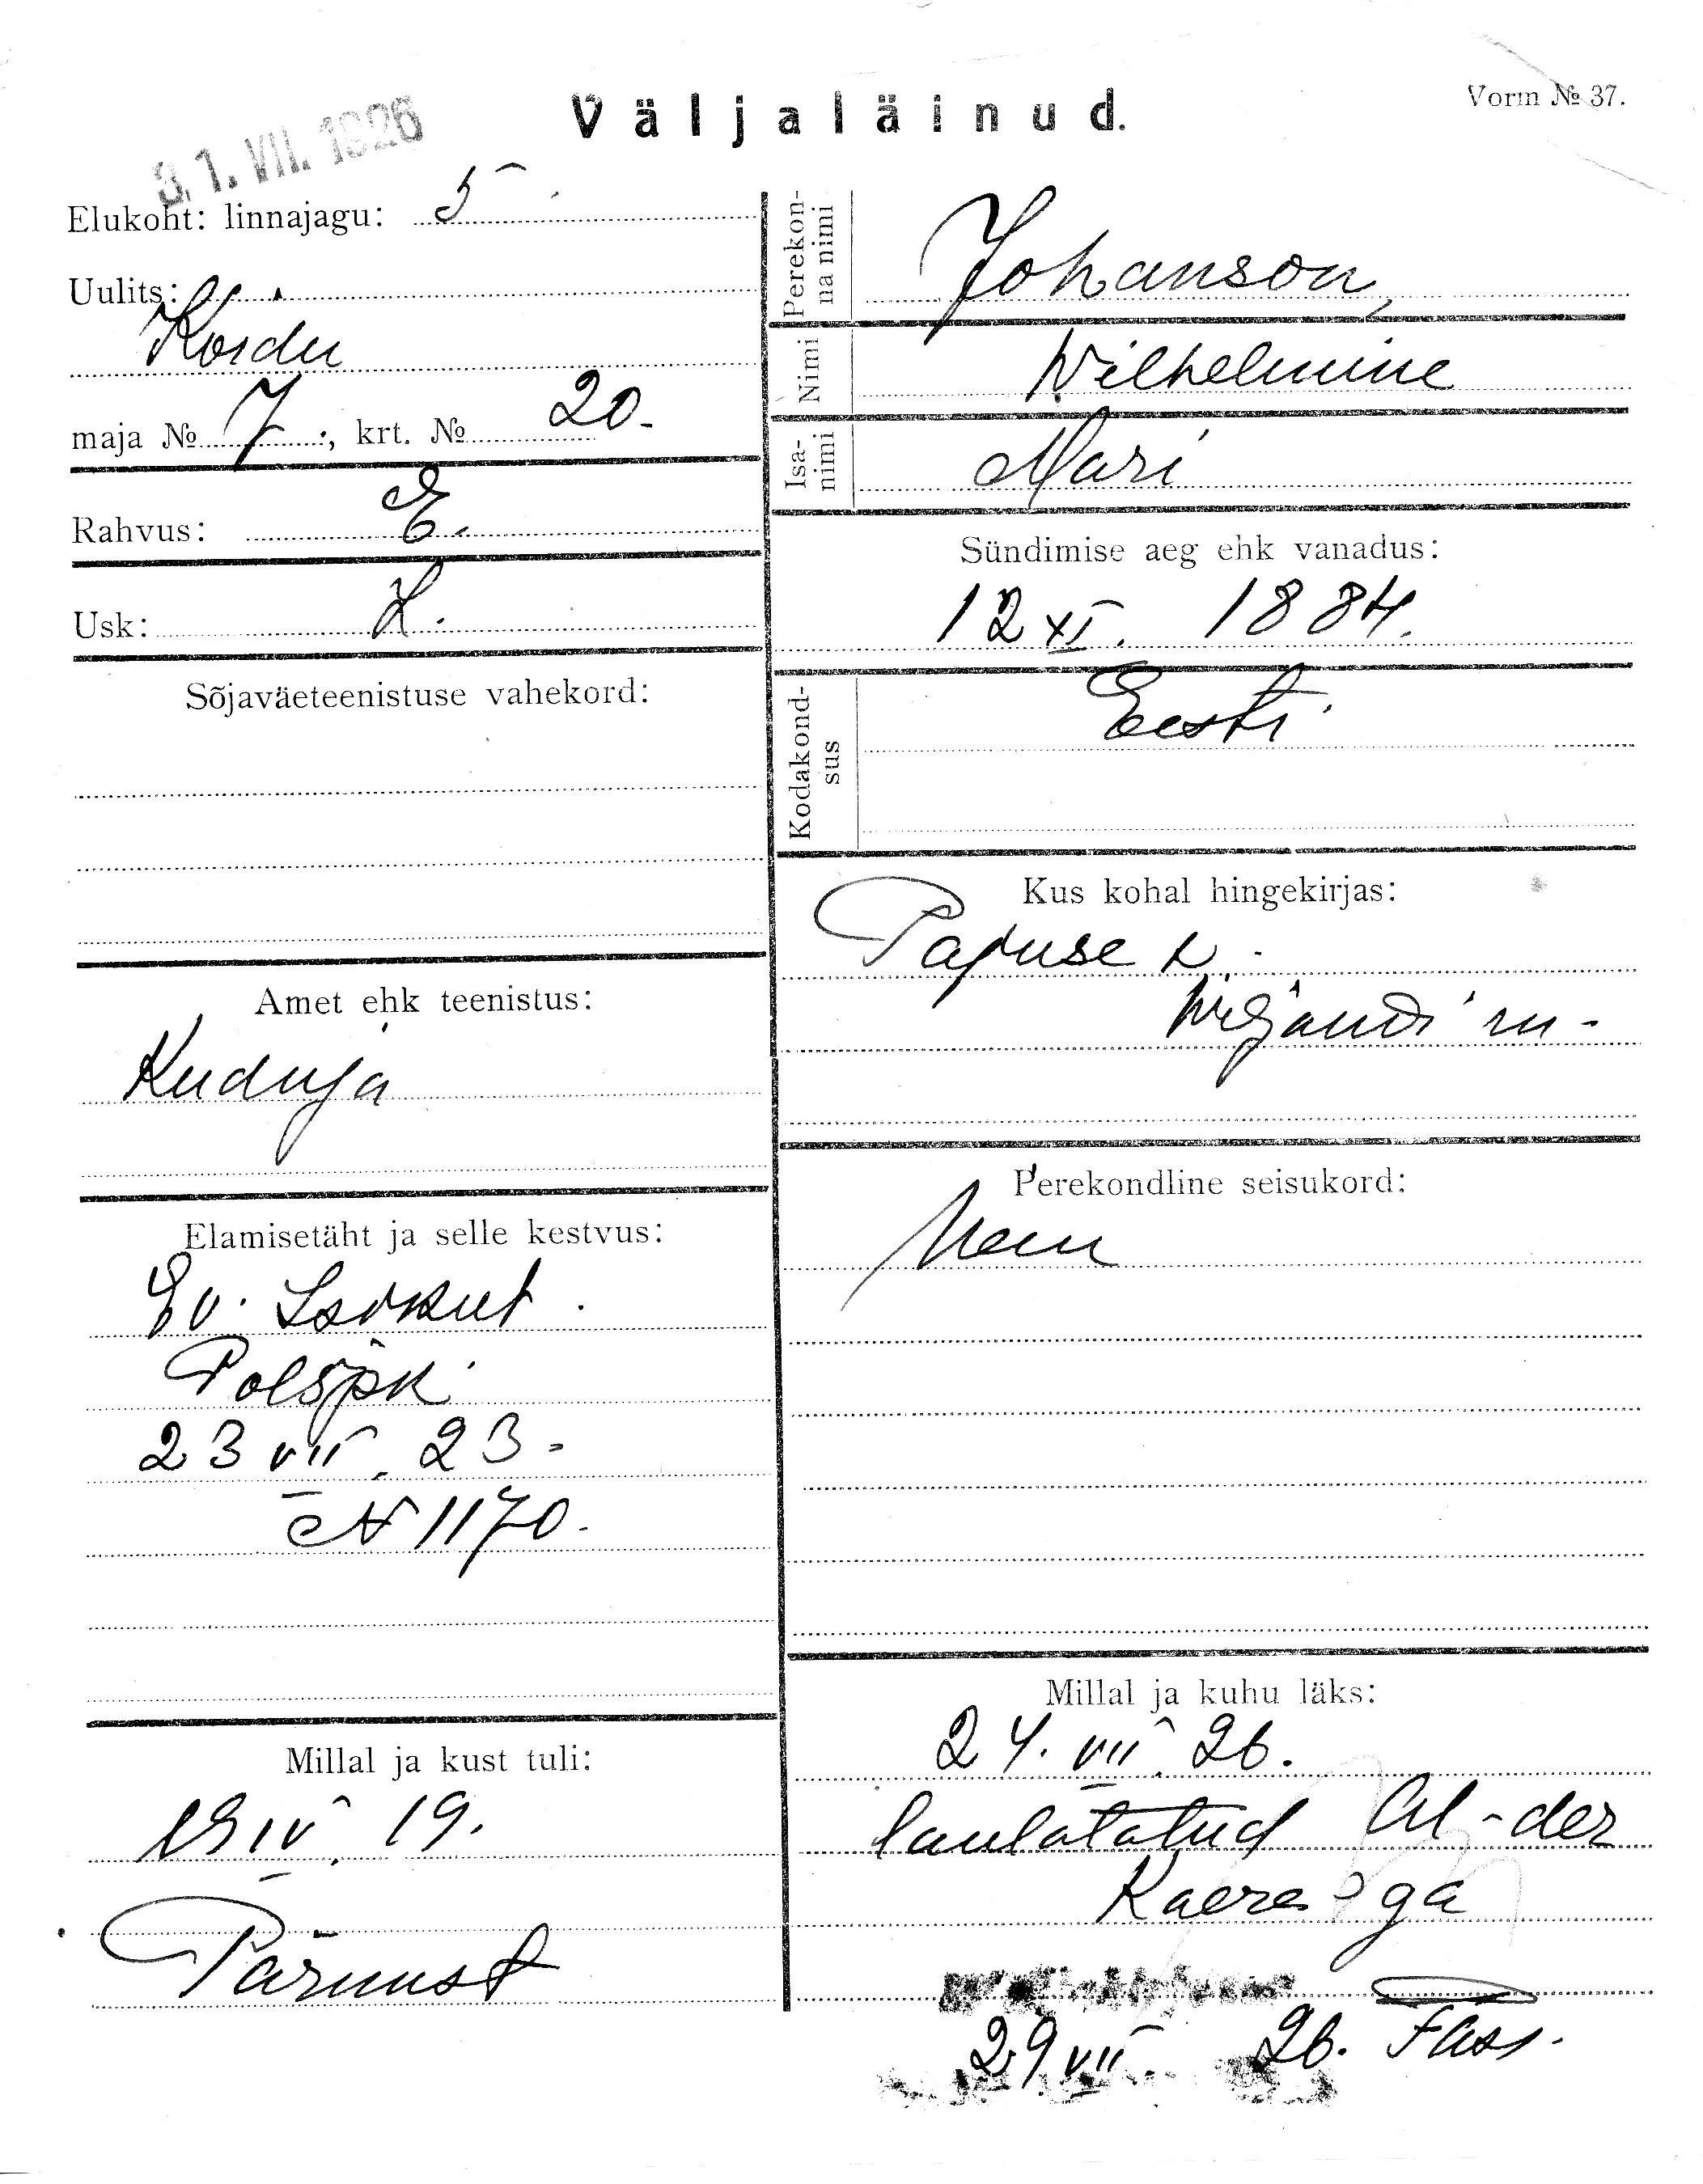 Vorm № 37.
Väljaläinud.
31. VII. 1926
Elukoht: linnajagu: 5
Uulits:
Koidu
maja № 7, krt. № 20.
Rahvus: E.
Usk: L.
Sõjaväeteenistuse vahekord:
Amet ehk teenistus:
Kuduja
Elamisetäht ja selle kestvus:
Ev. Isikut
Pol. 5 jsk
23 VII. 23.
N 1170.
Millal ja kust tuli:
19 IV. 19.
Pärnust
Perekonna nimi
Johanson,
Nimi
Wilhelmine
Isanimi
Mari
Sündimise aeg ehk vanadus:
12 XI. 1884.
Kodakondsus
Eesti
Kus kohal hingekirjas:
Pajuse v.
Viljandi m.
Perekondline seisukord:
Millal ja kuhu läks:
24. VII. 26.
laulatatud Al-der
Kaere ga
29 VII. 26.